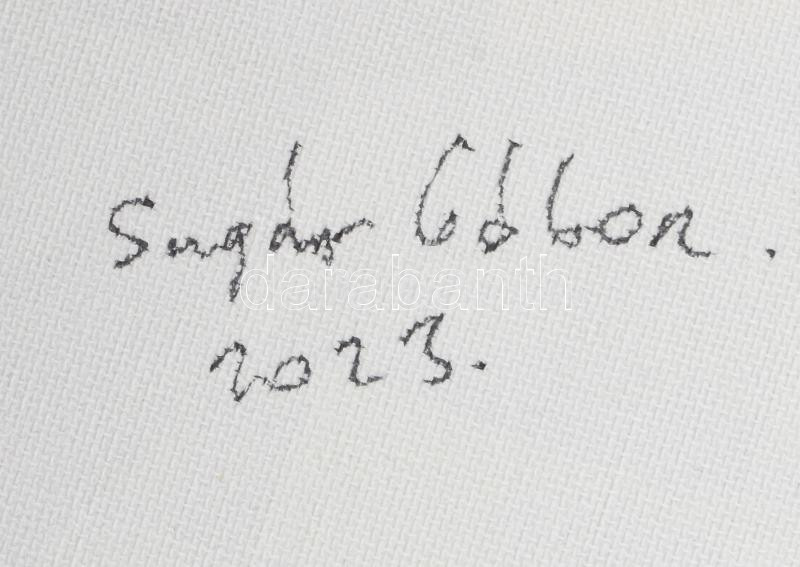 Sugár Gábor.
2023.
darabanth